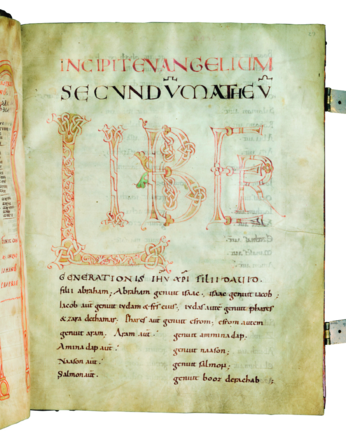 INCIPIT EVANGELIUM
SECUNDUM MATHEU
LIBER
GENERATIONIS IHU XPI FILII DAUID
filii abraham; Abraham genuit isaac. isaac genuit iacob;
iacob aut genuit iudam & frs eius; iudas aute genuit phares
& zara dethamar. Phares aut genuit esrom; esrom autem
genuit aram. Aram aut genuit aminadap
Aminadap aut genuit naason;
Naason aut genuit salmon;
Salmon aut genuit booz derachab